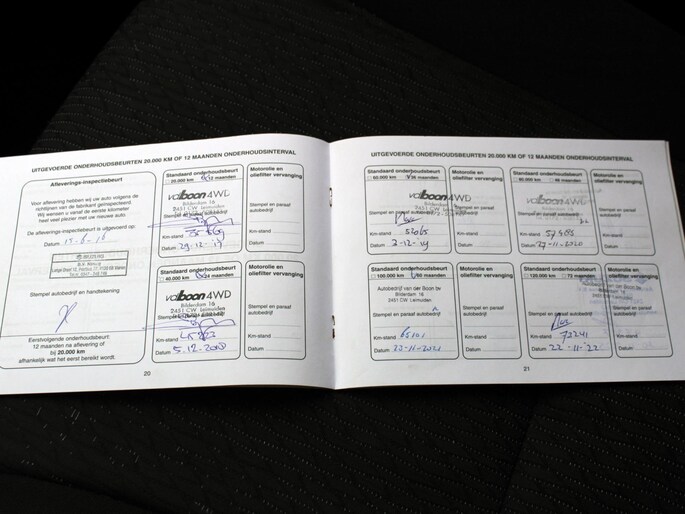 UITGEVOERDE ONDERHOUDSBEURTEN 20.000 KM OF 12 MAANDEN ONDERHOUDSINTERVAL
Afleverings-inspectiebeurt
Voor aflevering hebben wij uw auto volgens de
richtlijnen van de fabrikant geïnspecteerd.
Wij wensen u vanaf de eerste kilometer
heel veel plezier met uw nieuwe auto.
De afleverings-inspectiebeurt is uitgevoerd op:
Datum
Stempel autobedrijf en handtekening
Eerstvolgende onderhoudsbeurt:
12 maanden na aflevering of
bij 20.000 km
afhankelijk wat het eerst bereikt wordt.
Standaard onderhoudsbeurt
20.000 km 12 maanden
valboon 4WD
Bilderdam 16
2451 CW Leimuiden
Km-stand
Datum 29-12-17
Motorolie en
oliefilter vervanging
Stempel en paraaf
autobedrijf
Km-stand
Datum
Standaard onderhoudsbeurt
40.000 km 24 maanden
valboon 4WD
Bilderdam 16
2451 CW Leimuiden
Km-stand
Datum 5.12.2018
Motorolie en
oliefilter vervanging
Stempel en paraaf
autobedrijf
Km-stand
Datum
20
UITGEVOERDE ONDERHOUDSBEURTEN 20.000 KM OF 12 MAANDEN ONDERHOUDSINTERVAL
Standaard onderhoudsbeurt
60.000 km 36 maanden
valboon 4WD
Bilderdam 16
2451 CW Leimuiden
Stempel en paraaf autobedrijf
Km-stand 52065
Datum 2-12-19
Motorolie en
oliefilter vervanging
Stempel en paraaf
autobedrijf
Km-stand
Datum
Standaard onderhoudsbeurt
80.000 km 48 maanden
Stempel en paraaf autobedrijf
Km-stand
Datum 27-11-2020
Motorolie en
oliefilter vervanging
Stempel en paraaf
autobedrijf
Km-stand
Datum
Standaard onderhoudsbeurt
100.000 km 60 maanden
Autobedrijf van der Boon bv
Bilderdam 16
2451 CW Leimuiden
Stempel en paraaf autobedrijf
Km-stand 65101
Datum 23-11-2021
Motorolie en
oliefilter vervanging
Stempel en paraaf
autobedrijf
Km-stand
Datum
Standaard onderhoudsbeurt
120.000 km 72 maanden
Stempel en paraaf autobedrijf
Km-stand 72241
Datum 22-11-'22
Motorolie en
oliefilter vervanging
Stempel en paraaf
autobedrijf
Km-stand
Datum
21